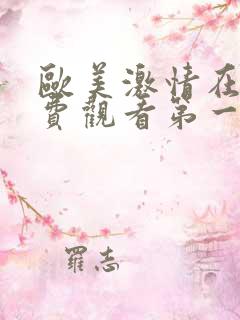 歐美激情在
費觀看第一
羅志